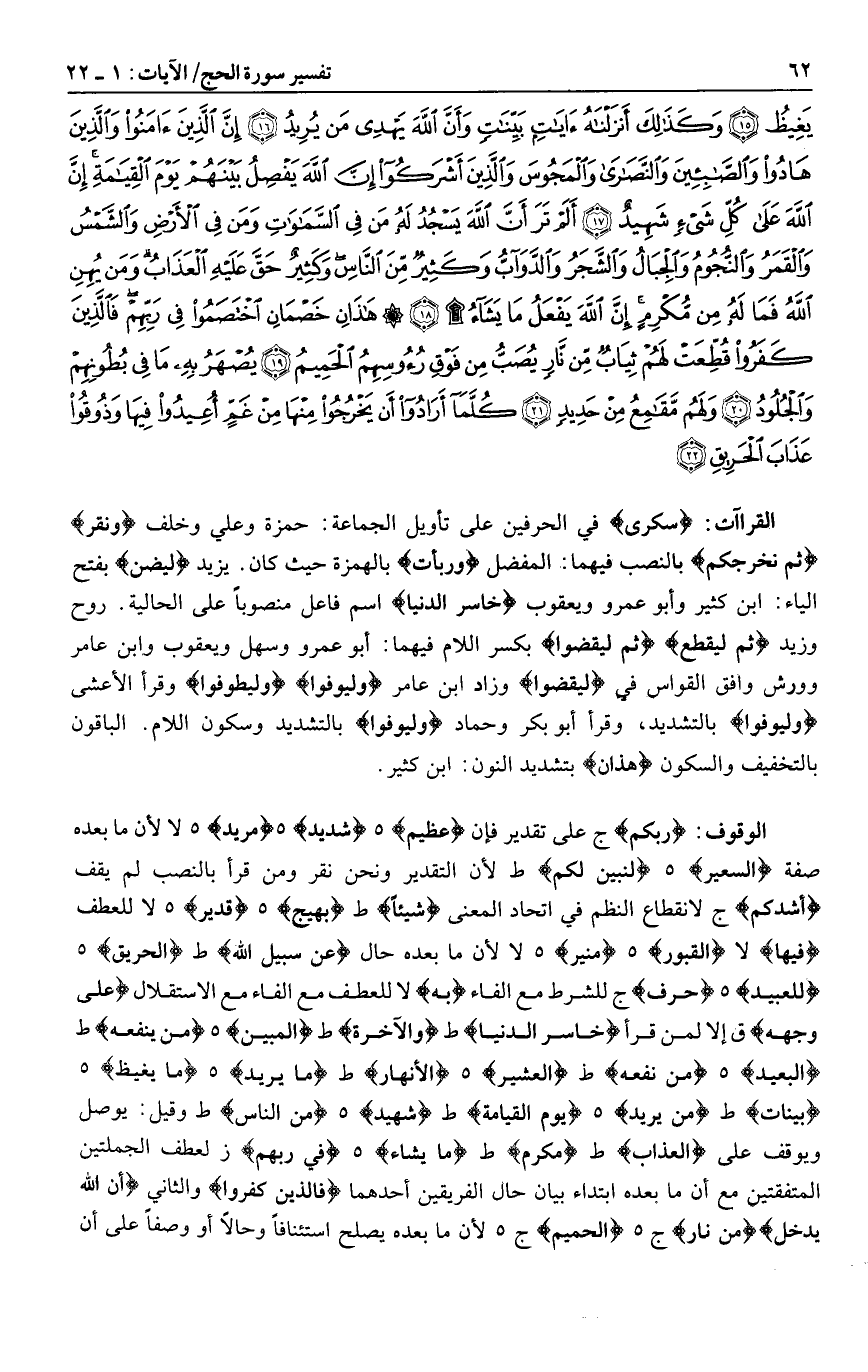 ٦٢
تفسير سورة الحج/ الآيات: ١ ـ ٢٢
يَغِيظُ ۝١٥ وَكَذَٰلِكَ أَنزَلْنَٰهُ ءَايَٰتٍۭ بَيِّنَٰتٍ وَأَنَّ ٱللَّهَ يَهْدِى مَن يُرِيدُ ۝١٦ إِنَّ ٱلَّذِينَ ءَامَنُوا۟ وَٱلَّذِينَ
هَادُوا۟ وَٱلصَّٰبِـِٔينَ وَٱلنَّصَٰرَىٰ وَٱلْمَجُوسَ وَٱلَّذِينَ أَشْرَكُوٓا۟ إِنَّ ٱللَّهَ يَفْصِلُ بَيْنَهُمْ يَوْمَ ٱلْقِيَٰمَةِ ۚ إِنَّ
ٱللَّهَ عَلَىٰ كُلِّ شَىْءٍ شَهِيدٌ ۝١٧ أَلَمْ تَرَ أَنَّ ٱللَّهَ يَسْجُدُ لَهُۥ مَن فِى ٱلسَّمَٰوَٰتِ وَمَن فِى ٱلْأَرْضِ وَٱلشَّمْسُ
وَٱلْقَمَرُ وَٱلنُّجُومُ وَٱلْجِبَالُ وَٱلشَّجَرُ وَٱلدَّوَآبُّ وَكَثِيرٌ مِّنَ ٱلنَّاسِ ۖ وَكَثِيرٌ حَقَّ عَلَيْهِ ٱلْعَذَابُ ۗ وَمَن يُهِنِ
ٱللَّهُ فَمَا لَهُۥ مِن مُّكْرِمٍ ۚ إِنَّ ٱللَّهَ يَفْعَلُ مَا يَشَآءُ ۩ ۝١٨ ۞ هَٰذَانِ خَصْمَانِ ٱخْتَصَمُوا۟ فِى رَبِّهِمْ ۖ فَٱلَّذِينَ
كَفَرُوا۟ قُطِّعَتْ لَهُمْ ثِيَابٌ مِّن نَّارٍ يُصَبُّ مِن فَوْقِ رُءُوسِهِمُ ٱلْحَمِيمُ ۝١٩ يُصْهَرُ بِهِۦ مَا فِى بُطُونِهِمْ
وَٱلْجُلُودُ ۝٢٠ وَلَهُم مَّقَٰمِعُ مِنْ حَدِيدٍ ۝٢١ كُلَّمَآ أَرَادُوٓا۟ أَن يَخْرُجُوا۟ مِنْهَا مِنْ غَمٍّ أُعِيدُوا۟ فِيهَا وَذُوقُوا۟
عَذَابَ ٱلْحَرِيقِ ۝٢٢
القراآت: ﴿سكرى﴾ في الحرفين على تأويل الجماعة: حمزة وعلي وخلف ﴿ونقر﴾
﴿ثم نخرجكم﴾ بالنصب فيهما: المفضل ﴿وربأت﴾ بالهمزة حيث كان. يزيد ﴿ليضن﴾ بفتح
الياء: ابن كثير وأبو عمرو ويعقوب ﴿خاسر الدنيا﴾ اسم فاعل منصوباً على الحالية. روح
وزيد ﴿ثم ليقطع﴾ ﴿ثم ليقضوا﴾ بكسر اللام فيهما: أبو عمرو وسهل ويعقوب وابن عامر
وورش وافق القواس في ﴿ليقضوا﴾ وزاد ابن عامر ﴿وليوفوا﴾ ﴿وليطوفوا﴾ وقرأ الأعشى
﴿وليوفوا﴾ بالتشديد، وقرأ أبو بكر وحماد ﴿وليوفوا﴾ بالتشديد وسكون اللام. الباقون
بالتخفيف والسكون ﴿هذان﴾ بتشديد النون: ابن كثير.
الوقوف: ﴿ربكم﴾ ج على تقدير فإن ﴿عظيم﴾ ٥ ﴿شديد﴾ ٥ ﴿مريد﴾ ٥ لا لأن ما بعده
صفة ﴿السعير﴾ ٥ ﴿لنبين لكم﴾ ط لأن التقدير ونحن نقر ومن قرأ بالنصب لم يقف
﴿أشدكم﴾ ج لانقطاع النظم في اتحاد المعنى ﴿شيئاً﴾ ط ﴿بهيج﴾ ٥ ﴿قدير﴾ ٥ لا للعطف
﴿فيها﴾ لا ﴿القبور﴾ ٥ ﴿منير﴾ ٥ لا لأن ما بعده حال ﴿عن سبيل الله﴾ ط ﴿الحريق﴾ ٥
﴿للعبيد﴾ ٥ ﴿حرف﴾ ج للشرط مع الفاء ﴿به﴾ لا للعطف مع الفاء مع الاستقلال ﴿على
وجهه﴾ ق إلا لمن قرأ ﴿خاسر الدنيا﴾ ط ﴿والآخرة﴾ ط ﴿المبين﴾ ٥ ﴿من ينفعه﴾ ط
﴿البعيد﴾ ٥ ﴿من نفعه﴾ ط ﴿العشير﴾ ٥ ﴿الأنهار﴾ ط ﴿ما يريد﴾ ٥ ﴿ما يغيظ﴾ ٥
﴿بينات﴾ ط ﴿من يريد﴾ ٥ ﴿يوم القيامة﴾ ط ﴿شهيد﴾ ٥ ﴿من الناس﴾ ط وقيل: يوصل
ويوقف على ﴿العذاب﴾ ط ﴿مكرم﴾ ط ﴿ما يشاء﴾ ٥ ﴿في ربهم﴾ ز لعطف الجملتين
المتفقتين مع أن ما بعده ابتداء بيان حال الفريقين أحدهما ﴿فالذين كفروا﴾ والثاني ﴿أن الله
يدخل﴾ ﴿من نار﴾ ج ٥ ﴿الحميم﴾ ج ٥ لأن ما بعده يصلح استئنافاً وحالاً أو وصفاً على أن